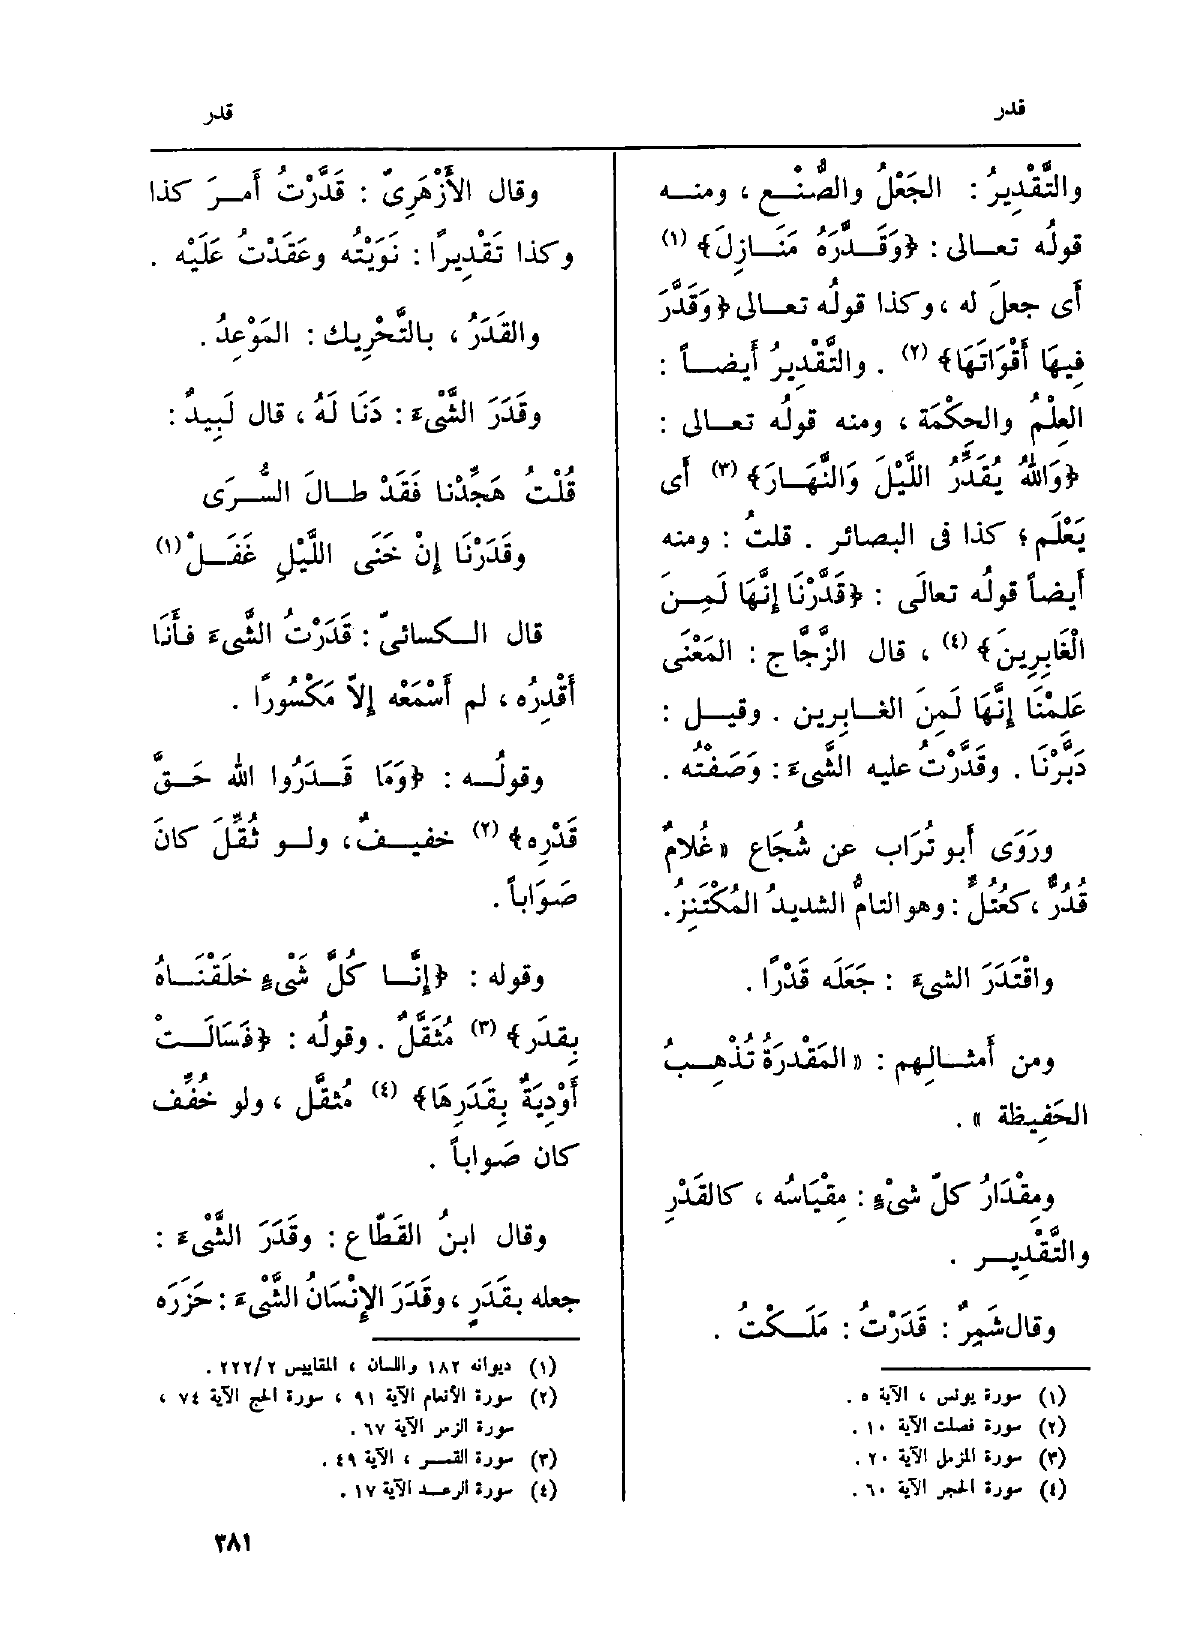 قدر
قدر
والتَّقْدِيرُ : الجَعْلُ والصُّنْع ، ومنه
قولُه تعالى : ﴿وَقَدَّرَهُ مَنَازِلَ﴾ (١)
أَى جعلَ له ، وكذا قولُه تعالى ﴿وَقَدَّرَ
فِيهَا أَقْوَاتَهَا﴾ (٢) . والتَّقْدِيرُ أَيضاً :
العِلْمُ والحِكْمَة ، ومنه قولُه تعالى :
﴿وَاللهُ يُقَدِّرُ اللَّيْلَ وَالنَّهَارَ﴾ (٣) أَى
يَعْلَم ؛ كذا فى البصائر . قلتُ : ومنه
أَيضاً قولُه تعالَى : ﴿قَدَّرْنَا إِنَّهَا لَمِنَ
الْغَابِرِينَ﴾ (٤) ، قال الزَّجّاج : المَعْنَى
عَلِمْنَا إِنَّهَا لَمِنَ الغابرين . وقيل :
دَبَّرْنَا . وقَدَّرْتُ عليه الشَّىءَ : وَصَفْتُه .
ورَوَى أَبو تُرَاب عن شُجَاع « غُلامٌ
قُدُرٌّ ، كعُتُلٍّ : وهو التامُّ الشديدُ المُكْتَنِزُ .
واقْتَدَرَ الشىءَ : جَعَلَه قَدْرًا .
ومن أَمثالِهم : « المَقْدرَةُ تُذْهِبُ
الحَفِيظة » .
ومِقْدَارُ كلّ شىْءٍ : مِقْيَاسُه ، كالقَدْرِ
والتَّقْدِير .
وقال شَمِرٌ : قَدَرْتُ : مَلَكْتُ .
(١) سورة يونس ، الآية ٥ .
(٢) سورة فصلت الآية ١٠ .
(٣) سورة المزمل الآية ٢٠ .
(٤) سورة الحجر الآية ٦٠ .
وقال الأَزْهَرِىّ : قَدَّرْتُ أَمرَ كذا
وكذا تَقْدِيرًا : نَوَيْتُه وعَقَدْتُ عَلَيْه .
والقَدَرُ ، بالتَّحْرِيك : المَوْعِدُ .
وقَدَرَ الشَّىْءَ : دَنَا لَهُ ، قال لَبِيدٌ :
قُلْتُ هَجِّدْنا فَقَدْ طالَ السُّرَى
وقَدَرْنَا إِنْ خَنَى اللَّيْلِ غَفَلْ (١)
قال الكسائىّ : قَدَرْتُ الشَّىءَ فأَنَا
أَقْدِرُه ، لم أَسْمَعْه إِلاّ مَكْسُورًا .
وقولُه : ﴿وَمَا قَدَرُوا الله حَقَّ
قَدْرِه﴾ (٢) خفيفٌ ، ولو ثُقِّلَ كانَ
صَوَاباً .
وقوله : ﴿إِنَّا كُلَّ شَىْءٍ خلَقْنَاهُ
بِقدَر﴾ (٣) مُثَقَّلٌ . وقولُه : ﴿فَسَالَتْ
أَوْدِيَةٌ بِقَدَرِهَا﴾ (٤) مُثقل ، ولو خُفِّف
كان صَواباً .
وقال ابنُ القَطّاع : وقَدَرَ الشَّىْءَ :
جعله بقَدَرٍ ، وقَدَرَ الإِنْسَانُ الشَّىْءَ : حَزَرَه
(١) ديوانه ١٨٢ واللسان ، المقاييس ٢٢٢/٢ .
(٢) سورة الأنعام الآية ٩١ ، سورة الحج الآية ٧٤ ،
سورة الزمر الآية ٦٧ .
(٣) سورة القمر ، الآية ٤٩ .
(٤) سورة الرعد الآية ١٧ .
٣٨١